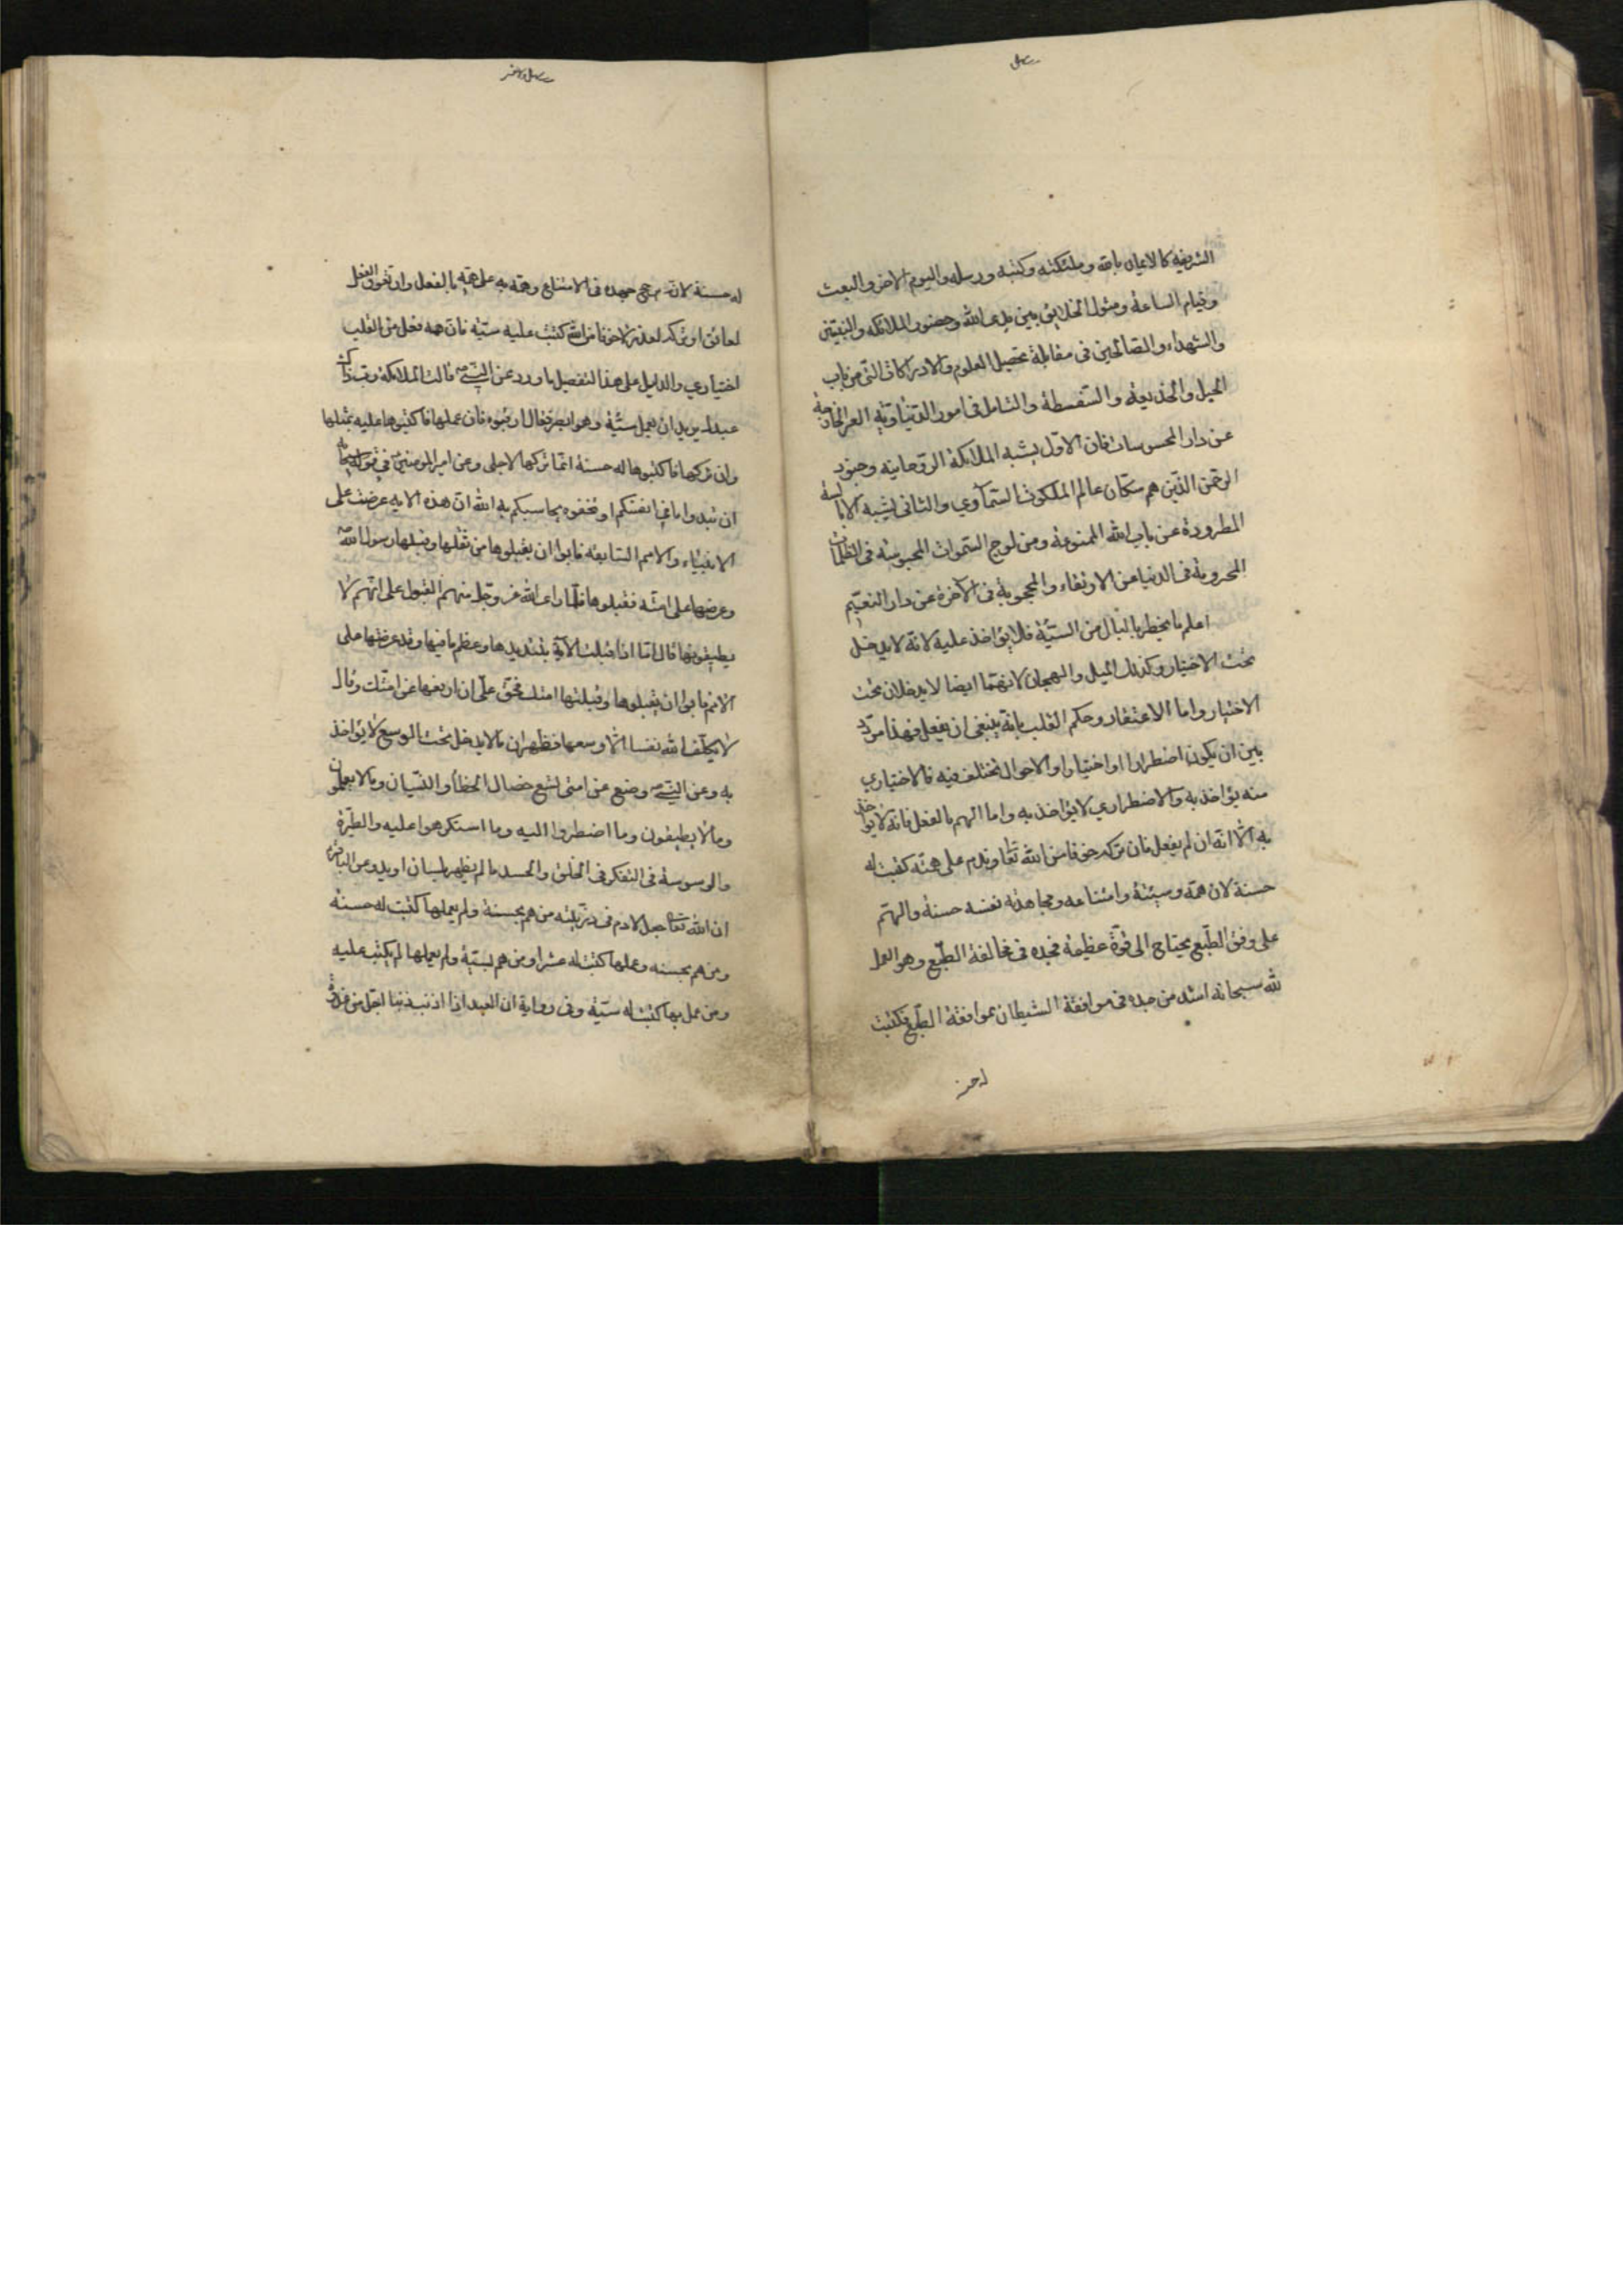 الشريفة كالايمان بالله وملئكته وكتبه ورسله واليوم الاخر والبعث
وقيام الساعة ومثول الخلايق بين يدى الله وحضور الملائكة والنبيّين
والشهداء والصّالحين فى مقابلة تحصيل العلوم والادراكات التى من باب
الحيل والخديعة والسّفسطة والتأمل فى امور الدّنياويّه الغير الخارجة
عن دار المحسوسات فان الاوّل يشبه الملائكة الروّحانيه وجنود
الرحمن الذين هم سكّان عالم الملكوت السّمآوي والثانى يشبه الابالسة
المطرودة عن باب الله الممنوعة من ولوج السّموات المحبوسة فى الظلمات
المحرومة فى الدنيا عن الارتقاء والمحجوبة فى الآخرة عن دار النعيم
اعلم ما يخطر بالبال من السيّئة فلا يؤاخذ عليه لانه لا يدخل
تحت الاختيار وكذلك الميل والهيجان لانهمّا ايضا لا يدخلان تحت
الاختيار واما الاعتقاد وحكم القلب بانّه ينبغى ان يفعل فهذا مردّد
بين ان يكون اضطرارا او اختيارا والاحوال تختلف فيه فالاختياري
منه يؤاخذ به والاضطراري لا يؤاخذ به واما الهم بالفعل فانه لا يؤاخذ
به الّا انّه ان لم يفعل فان تركه خوفا من الله تعا وندم على همّه كتبت له
حسنة لان همّه سيئة وامتناعه ومجاهدة نفسه حسنة والهمّ
على وفق الطّبع يحتاج الى قوّة عظيمة فجده فى مخالفة الطّبع وهو العمل
لله سبحانه اشد من جده فى موافقة الشيطان بموافقة الطّبع فكتبت
له حسنة لانه رجح جهده فى الامتناع وهمّه به على همّه بالفعل وان تعوّق الفعل
لعائق او تركه لعذر لا خوفا من الله كتبت عليه سيّئة فانّ همه فعل من القلب
اختيارى والدليل على هذا التفصيل ما ورد عن النبى ص قالت الملائكة رب ذاك
عبدك يريد ان يعمل سيّئة وهو ابصر فقال ارقبوه فان عملها فاكتبوها عليه بمثلها
وان تركها فاكتبوها له حسنة انمّا تركها لاجلى وعن امير المومنين فى قوله سبحانه
ان تبدوا ما فى انفسكم او تخفوه يحاسبكم به الله ان هذه الايه عرضت على
الانبياء والامم السابقه فابوا ان يقبلوها من ثقلها وقبلها رسول الله
وعرضها على امته فقبلوها فلمّا راى الله عزّ وجل منهم القبول على انهم لا
يطيقونها قال امّا اذا قبلت الآية بتشديدها وعظم ما فيها وقد عرضتها على
الامم فابوا ان يقبلوها وقبلتها امتك فحقّ علىّ ان ارفعها عن امتّك وقال
لا يكلّف الله نفسا الّا وسعها فظهر ان ما لا يدخل تحت الوسع لا يؤاخذ
به وعن النبى ص وضع عن امتى تسع خصال الخطأ والنسيان وما لا يعلمون
وما لا يطيقون وما اضطروا اليه وما استكرهوا عليه والطيّرة
والوسوسة فى التفكر فى الخلق والحسد ما لم يظهر بلسان او يد وعن الباقر
ان الله تعا جعل لادم فى ذريّته من هم بحسنة ولم يعملها كتبت له حسنة
ومن هم بحسنه وعملها كتبت له عشرا ومن هم بسيّئة ولم يعملها لم يكتب عليه
ومن عمل بها كتبت له سيّئة وفى رواية ان العبد اذا اذنب ذنبا اجّل من غدوة